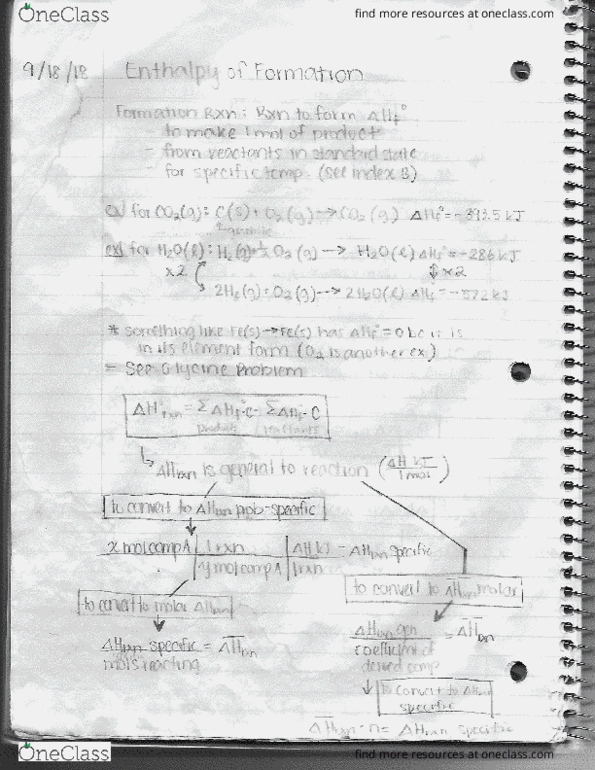 OneClass
find more resources at oneclass.com
9/18/18 Enthalpy of Formation
Formation Rxn: Rxn to form ΔHf°
to make 1 mol of product
- from reactants in standard state
- for specific temp. (see index B)
ex) for CO₂(g): C(s) + O₂(g) → CO₂(g) ΔHf° = -393.5 kJ
graphite
ex) for H₂O(l): H₂(g) + ½O₂(g) → H₂O(l) ΔHf° = -286 kJ
x2 x2
2H₂(g) + O₂(g) → 2H₂O(l) ΔHf = -572 kJ
* something like Fe(s) → Fe(s) has ΔHf° = 0 bc it is
in its element form (O₂ is another ex.)
- See Glycine Problem
ΔH°rxn = Σ ΔHf°·C - Σ ΔHf·C
products reactants
↳ ΔHrxn is general to reaction (ΔH kJ / 1 mol)
to convert to ΔHrxn prob-specific
x mol comp A | 1 rxn | ΔH kJ = ΔHrxn specific
| y mol comp A | 1 rxn
to convert to ΔHrxn molar
to convert to molar ΔHrxn
ΔHrxn gen = ΔHrxn
coefficient of
desired comp
ΔHrxn specific = ΔHrxn
mols reacting
to convert to ΔHrxn
specific
ΔHrxn · n = ΔHrxn specific
OneClass
find more resources at oneclass.com